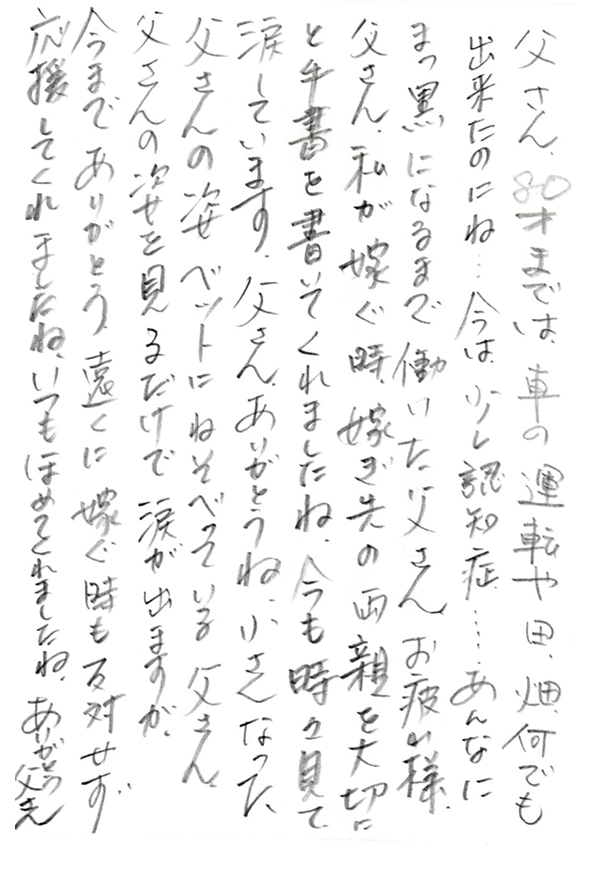 父さん、80才までは、車の運転や田、畑、何でも
出来たのにね…今は、少し認知症……あんなに
まっ黒になるまで働いた父さん、お疲れ様。
父さん、私が嫁ぐ時、嫁ぎ先の両親を大切に
と手書を書いてくれましたね、今も時々見て、
涙しています、父さん、ありがとうね、小さくなった、
父さんの姿 ベットにねそべっている 父さん、
父さんの姿を見るだけで 涙が出ますが、
今までありがとう、遠くに嫁ぐ時も反対せず
応援してくれましたね、いつもほめてくれましたね、ありがとう父さん